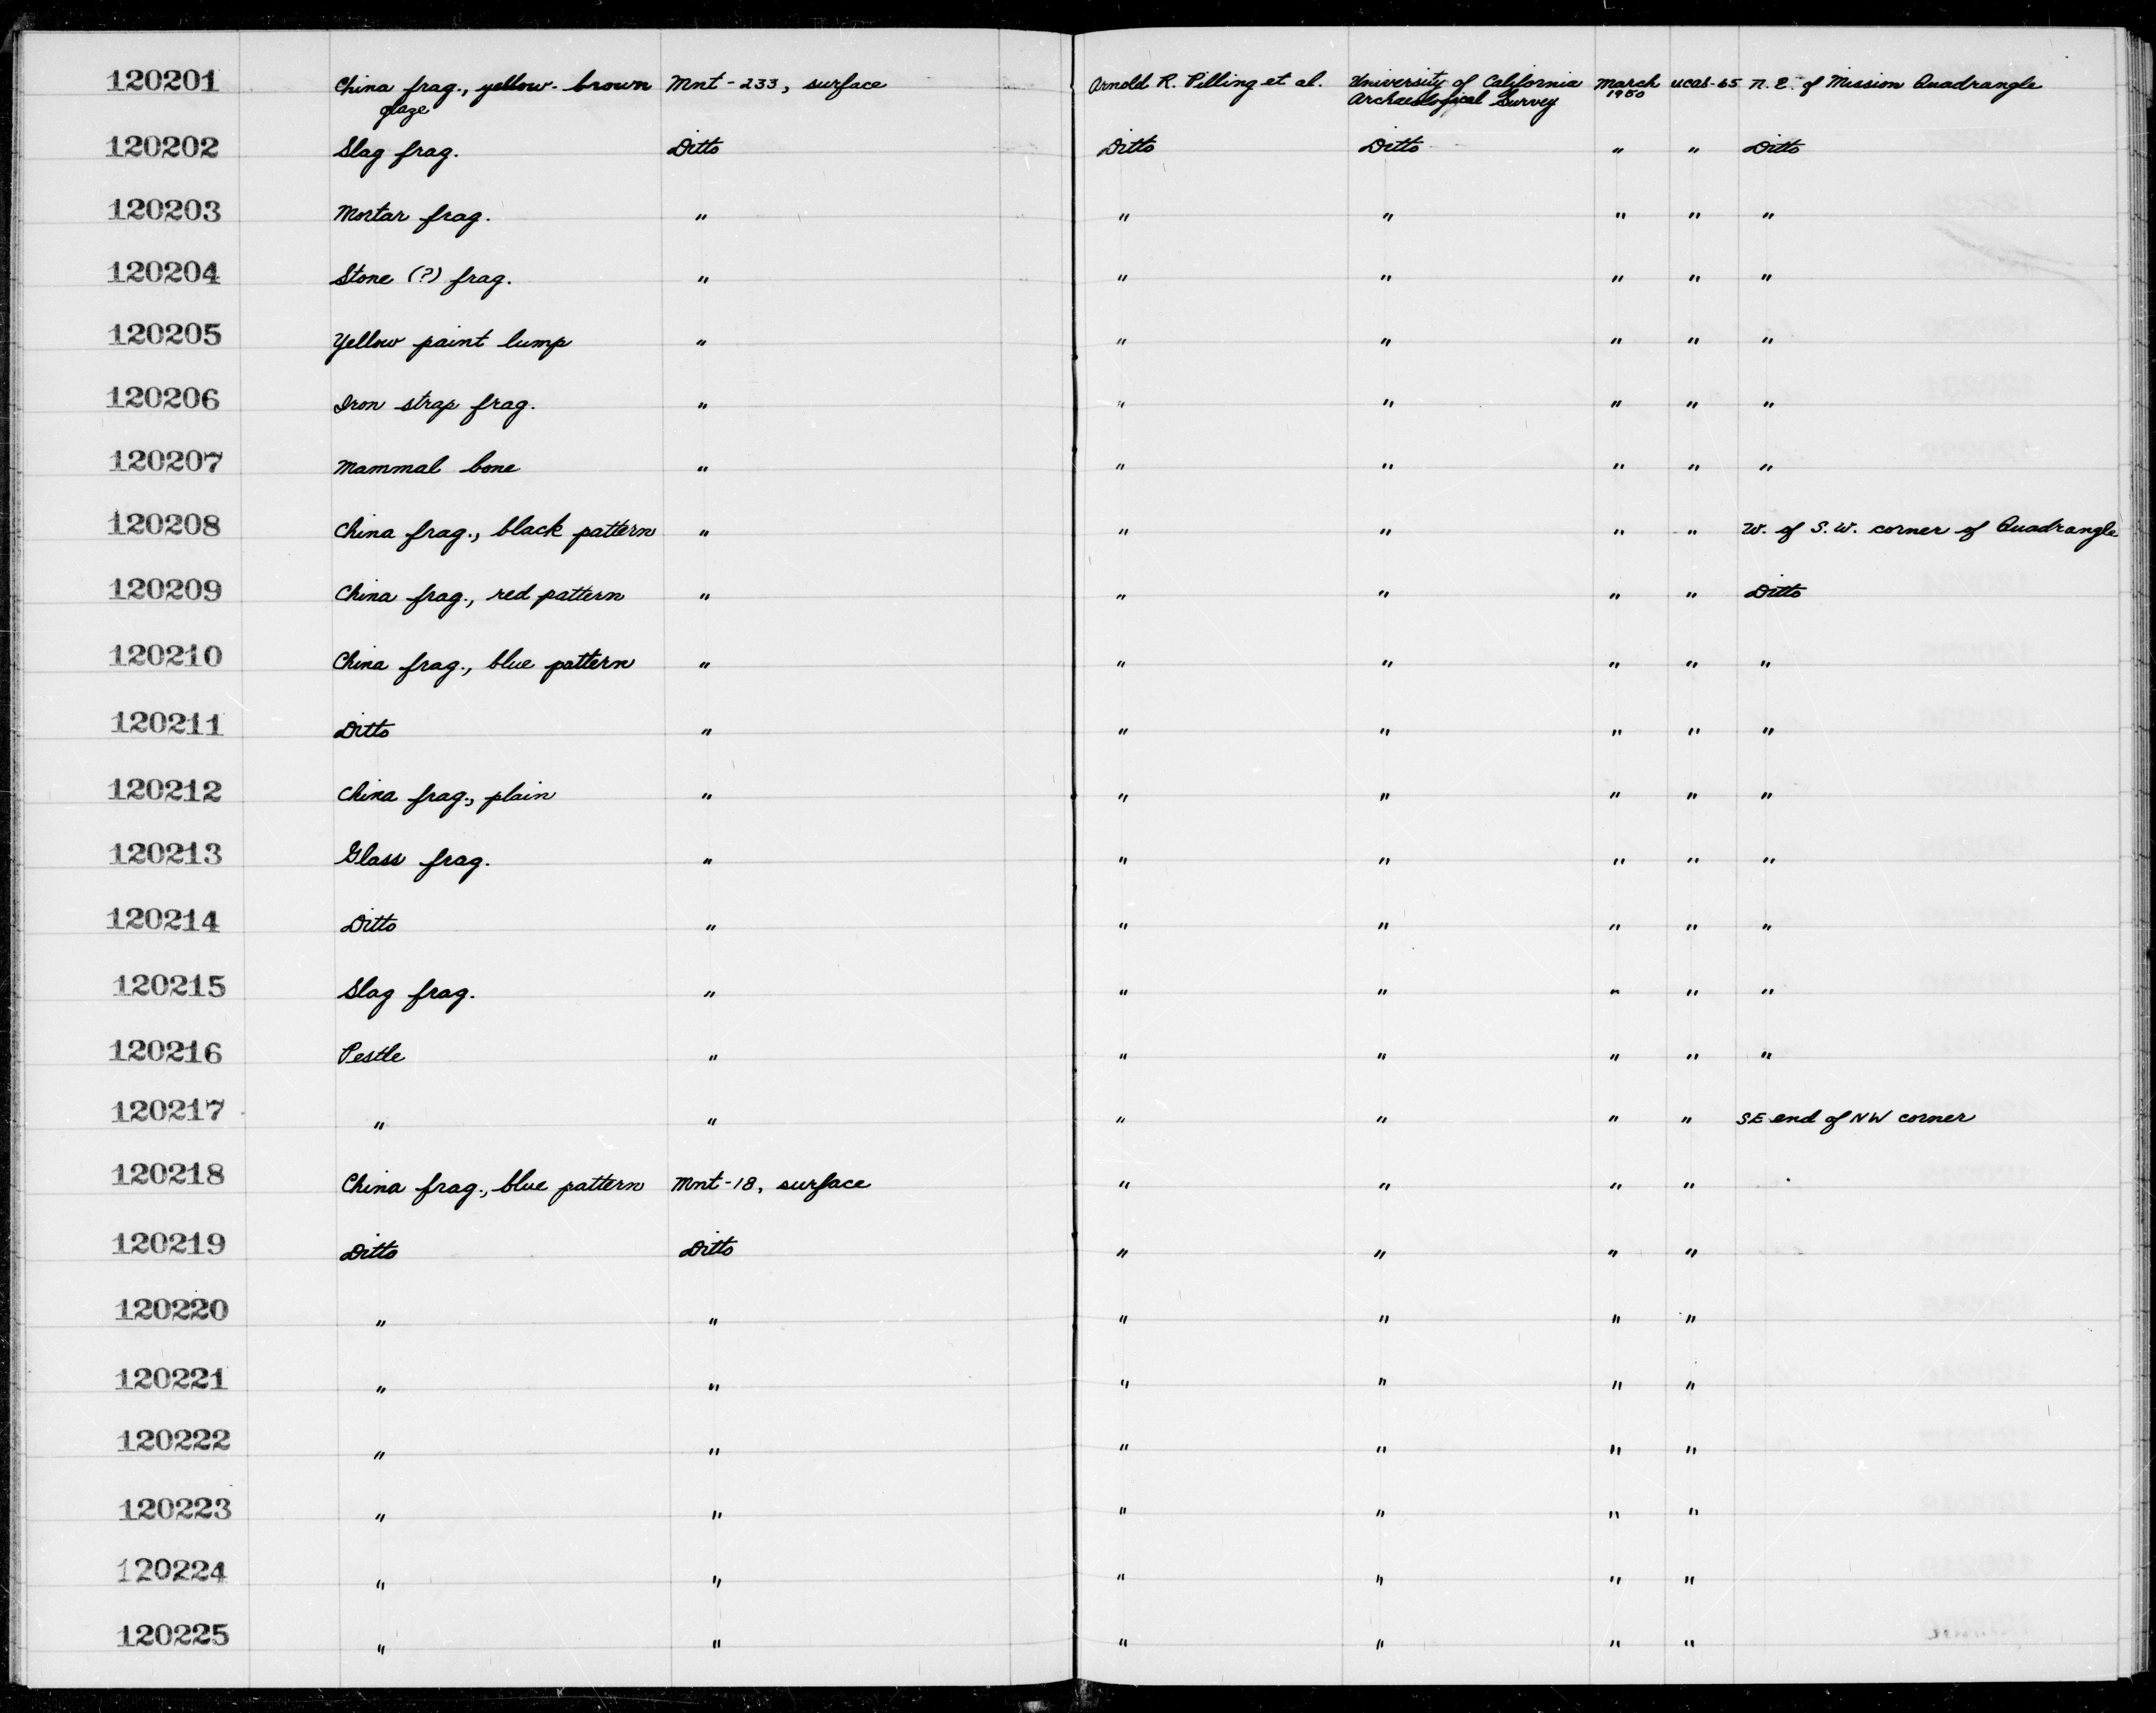 120201 China frag., yellow-brown glaze Mnt-233, surface Arnold R. Pilling et al. University of California Archaeological Survey March 1950 UCAS-65 N.E. of Mission Quadrangle
120202 Slag frag. Ditto Ditto Ditto " " Ditto
120203 Mortar frag. " " " " " "
120204 Stone (?) frag. " " " " " "
120205 Yellow paint lump " " " " " "
120206 Iron strap frag. " " " " " "
120207 Mammal bone " " " " " "
120208 China frag., black pattern " " " " " W. of S.W. corner of Quadrangle
120209 China frag., red pattern " " " " " Ditto
120210 China frag., blue pattern " " " " " "
120211 Ditto " " " " " "
120212 China frag., plain " " " " " "
120213 Glass frag. " " " " " "
120214 Ditto " " " " " "
120215 Slag frag. " " " " " "
120216 Pestle " " " " " "
120217 " " " " " " SE end of NW corner
120218 China frag., blue pattern Mnt-18, surface " " " "
120219 Ditto Ditto " " " "
120220 " " " " " "
120221 " " " " " "
120222 " " " " " "
120223 " " " " " "
120224 " " " " " "
120225 " " " " " "